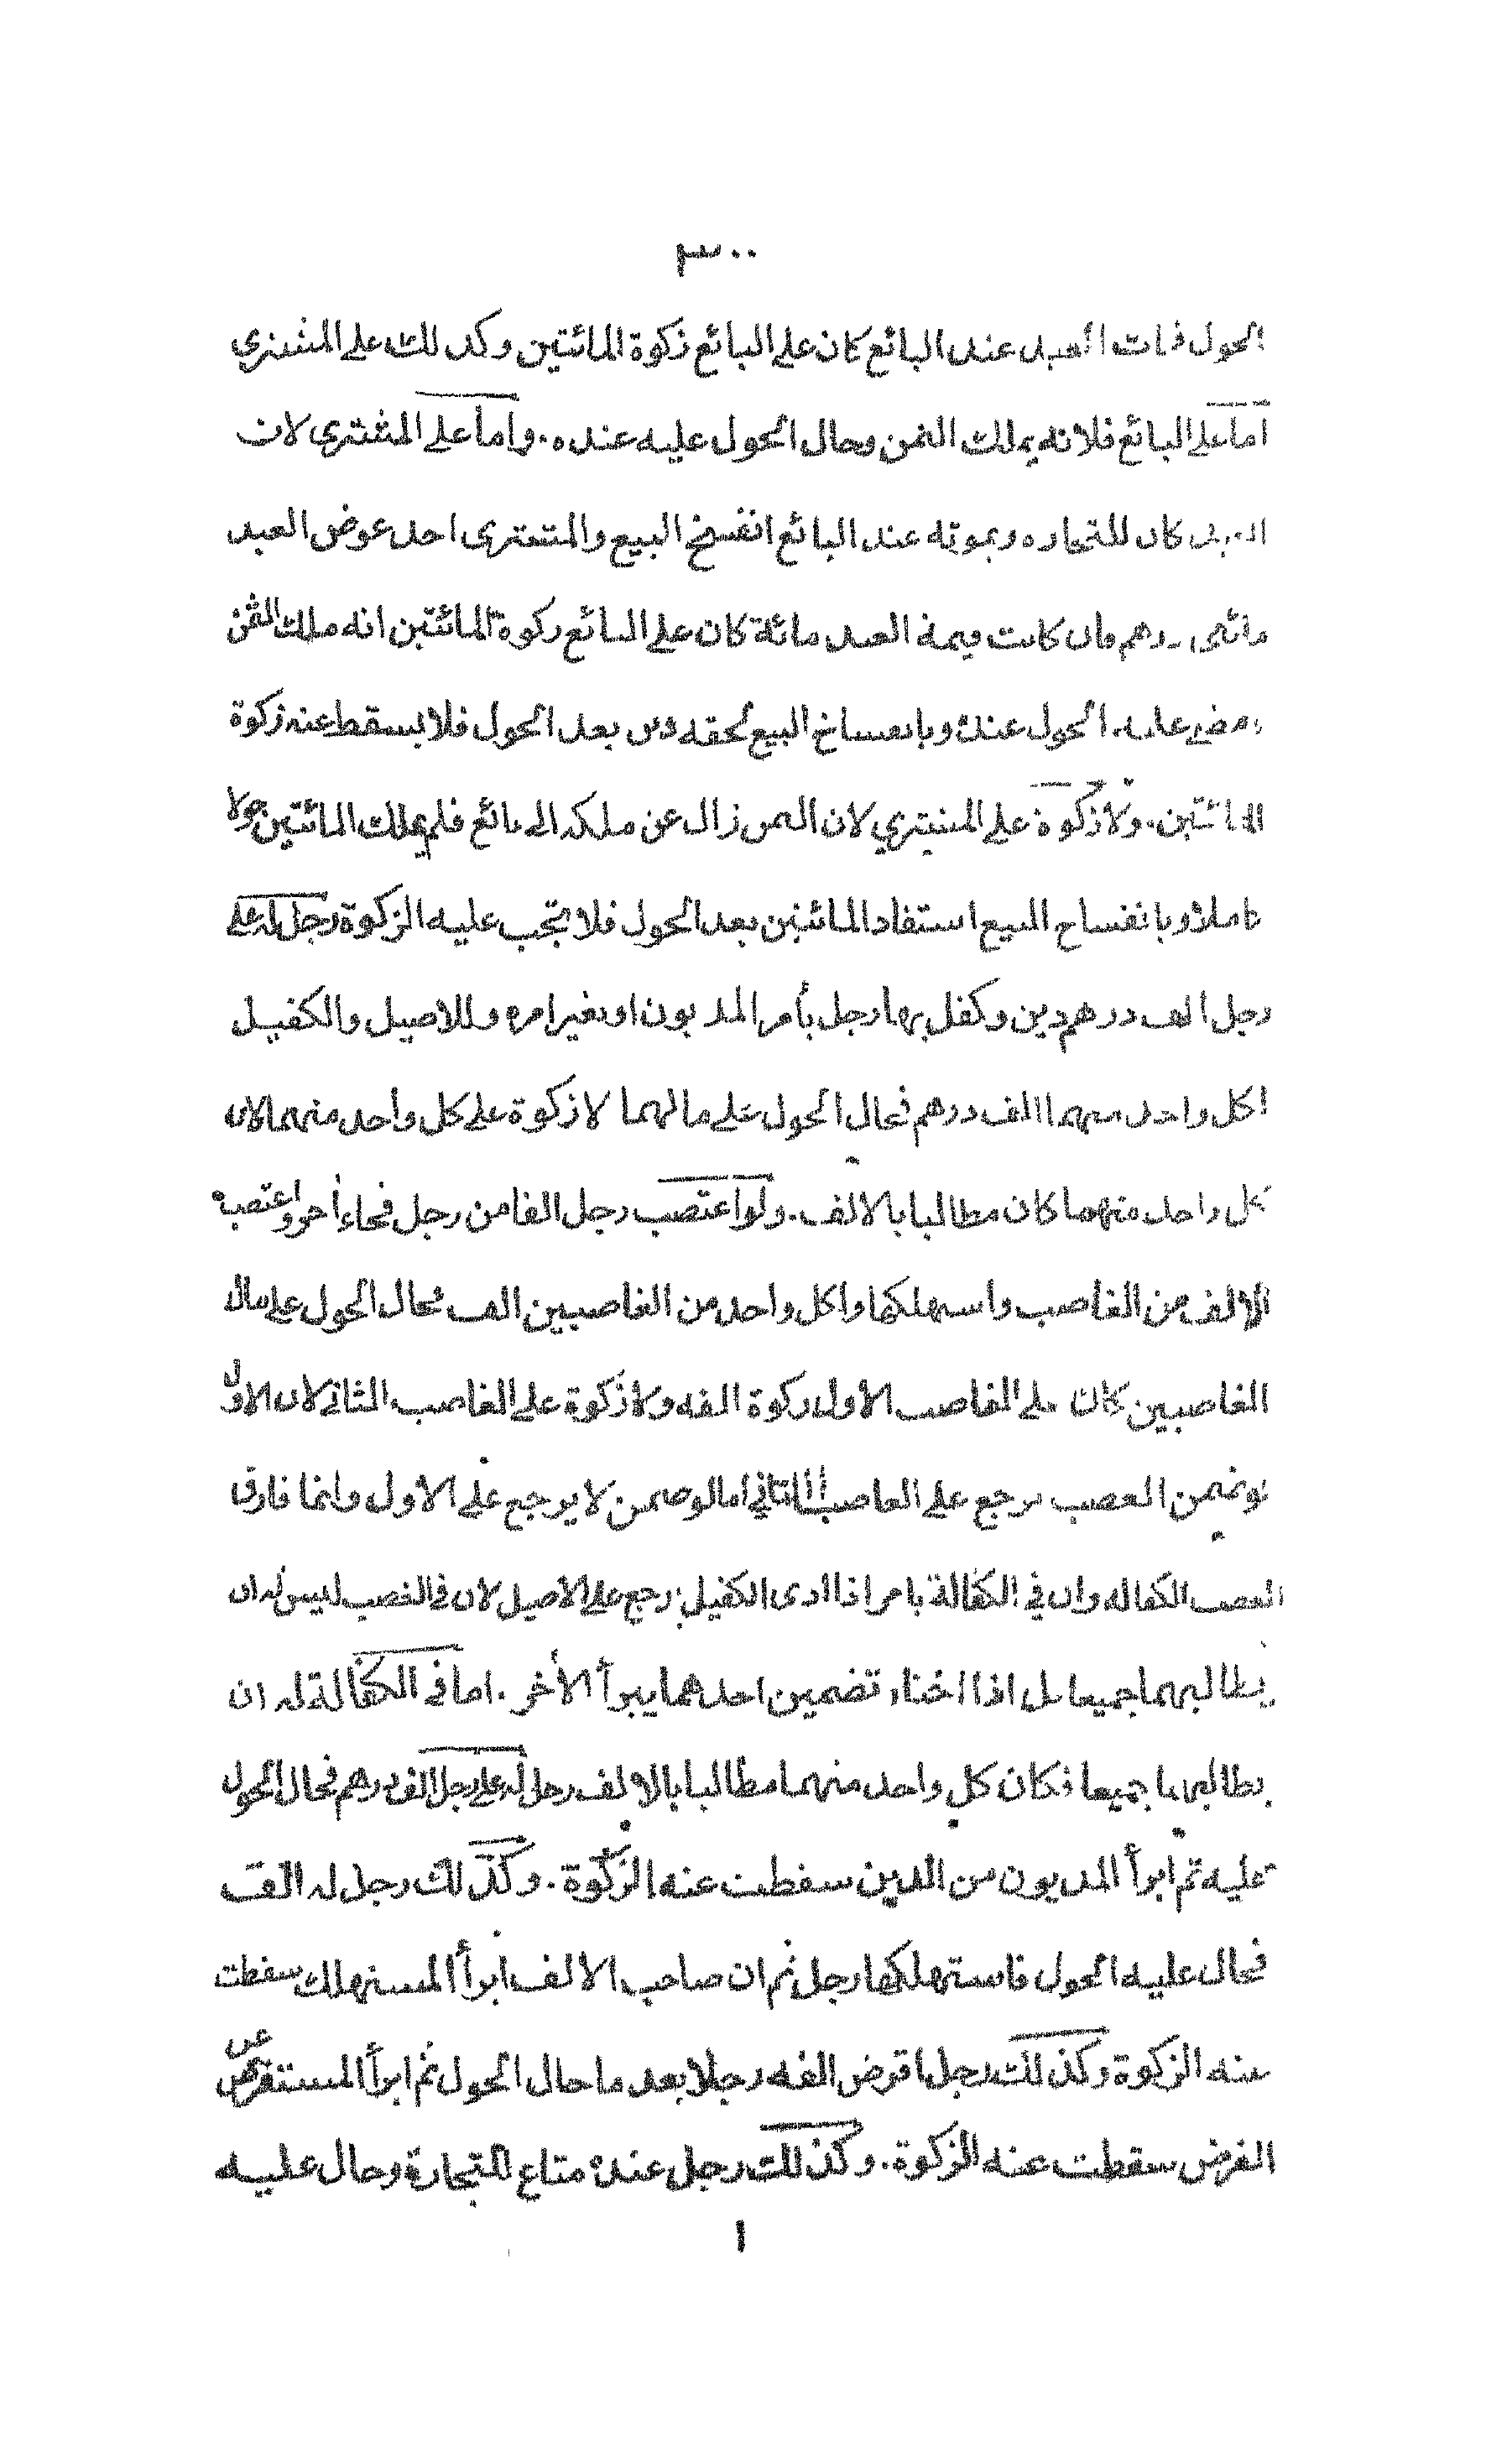 ٣٠٠
الحول فمات العبد عند البائع كان على البائع زكوة المائتين وكذلك على المشتري
اما على البائع فلانه يملك الثمن وحال الحول عليه عنده. واما على المشترى لان
كان للتجاره وبموته عند البائع انفسخ البيع والمشترى احد عوض العبد
مائتى درهم فان كانت قيمة العبد مائة كان على البائع زكوة المائتين انه ملك الثمن
ومضى عليه الحول عنده وبانفساخ البيع لحقه دين بعد الحول فلا يسقط عنه زكوة
المائتين. ولا زكوة على المشتري لان الثمن زال عن ملكه الى بائع فلم يملك المائتين حولا
كاملا وبانفساخ البيع استفاد المائتين بعد الحول فلا تجب عليه الزكوة رجل له على
رجل الف درهم دين وكفل بها رجل بأمر المديون او بغير امره وللاصيل والكفيل
لكل واحد منهما الف درهم فحال الحول على مالهما لا زكوة على كل واحد منهما لان
كل واحد منهما كان مطالبا بالالف. ولو اغتصب رجل الفا من رجل فجاء أخر واغتصب
الالف من الغاصب واستهلكها ولكل واحد من الغاصبين الف فحال الحول على مال
الغاصبين كان على الغاصب الاول زكوة الفه ولا زكوة على الغاصب الثانى لان الاول
لو ضمن الغصب يرجع على الغاصب الثاني اما لو ضمن لا يرجع على الاول وانما فارق
الغصب الكفاله وان في الكفالة بامر اذا ادى الكفيل يرجع على الاصيل لان فى الغصب ليس له ان
يطالبهما جميعا بل اذا اختار تضمين احدهما يبرأ الأخر. اما فى الكفالة له ان
يطالبهما جميعا فكان كل واحد منهما مطالبا بالالف رجل له على رجل الف درهم فحال الحول
عليه ثم ابرأ المديون من الدين سقطت عنه الزكوة. وكذلك رجل له الف
فحال عليه الحول فاستهلكها رجل ثم ان صاحب الالف ابرأ المستهلك سقطت
عنه الزكوة وكذلك رجل اقرض الفه رجلا بعد ما حال الحول ثم ابرأ المستقرض عن
القرض سقطت عنه الزكوة. وكذلك رجل عنده متاع للتجارة وحال عليه
١